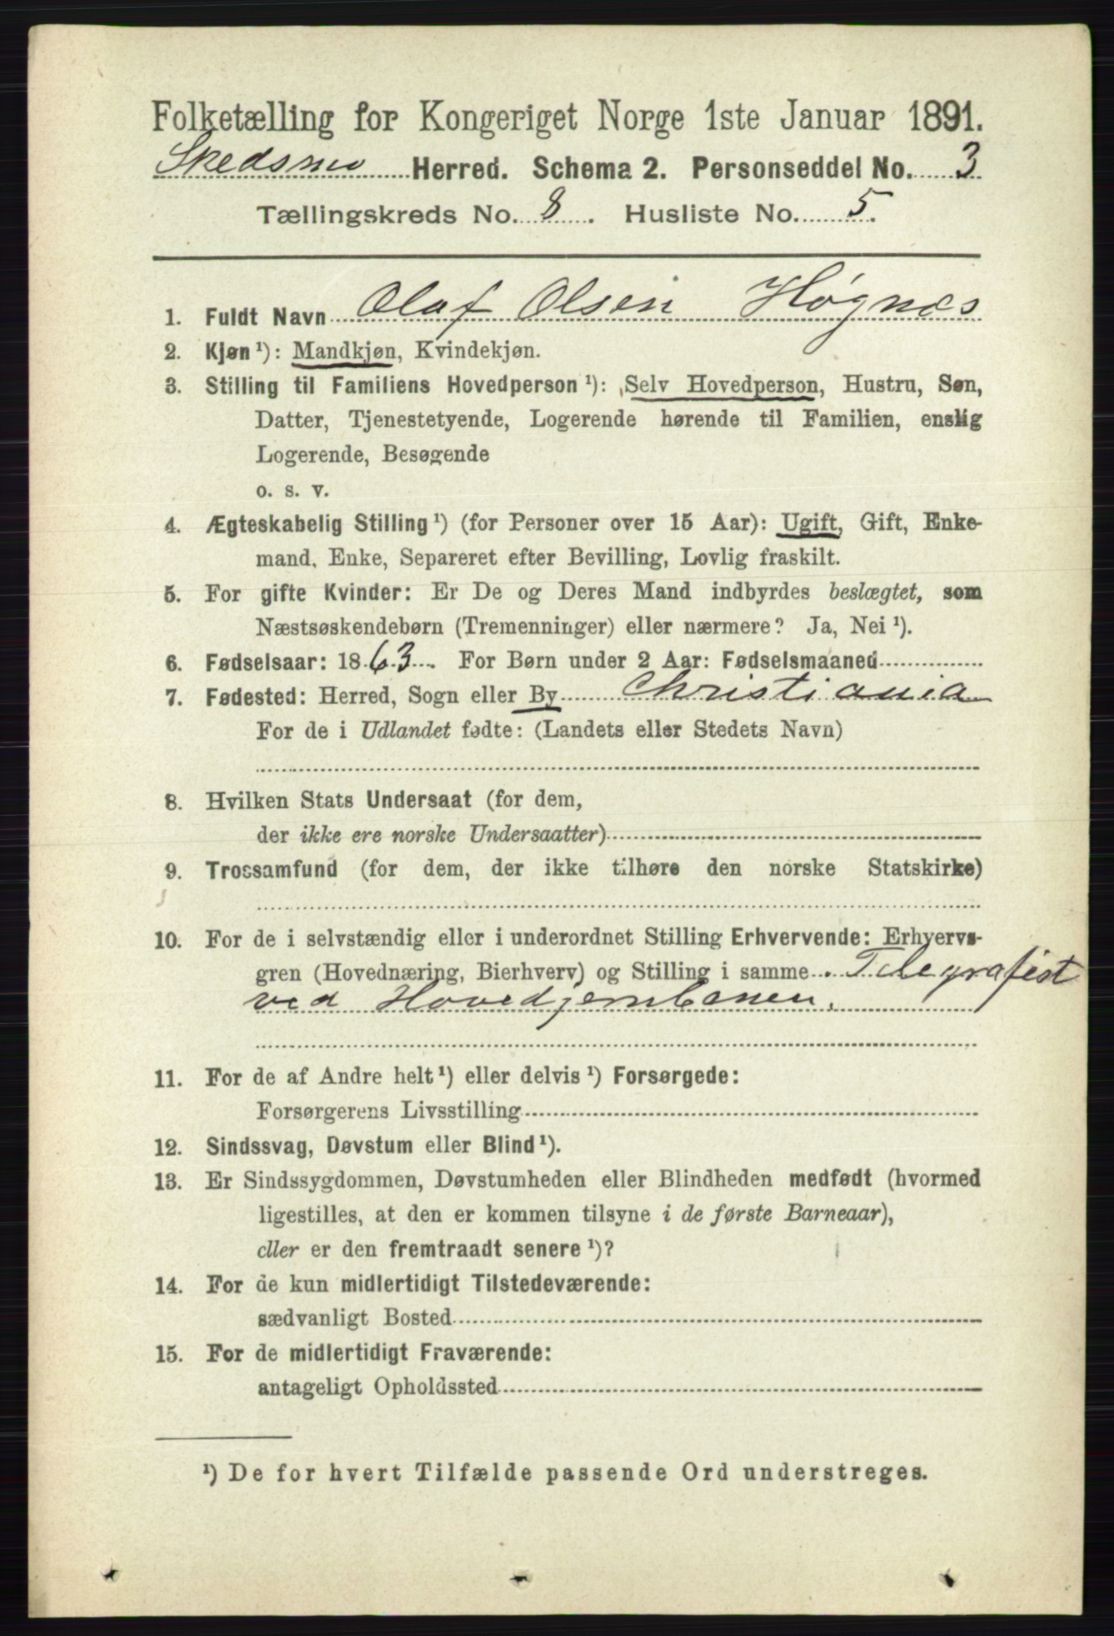 Folketælling for Kongeriget Norge 1ste Januar 1891.
Skedsmo Herred. Schema 2. Personseddel No. 3
Tællingskreds No. 8. Husliste No. 5.
1. Fuldt Navn Olaf Olsen Høgnæs
2. Kjøn¹): Mandkjøn, Kvindekjøn.
3. Stilling til Familiens Hovedperson¹): Selv Hovedperson, Hustru, Søn,
Datter, Tjenestetyende, Logerende hørende til Familien, enslig
Logerende, Besøgende
o. s. v.
4. Ægteskabelig Stilling¹) (for Personer over 15 Aar): Ugift, Gift, Enke-
mand, Enke, Separeret efter Bevilling, Lovlig fraskilt.
5. For gifte Kvinder: Er De og Deres Mand indbyrdes beslægtet, som
Næstsøskendebørn (Tremenninger) eller nærmere? Ja, Nei¹).
6. Fødselsaar: 1863. For Børn under 2 Aar: Fødselsmaaned
7. Fødested: Herred, Sogn eller By Christiania
For de i Udlandet fødte: (Landets eller Stedets Navn)
8. Hvilken Stats Undersaat (for dem,
der ikke ere norske Undersaatter)
9. Trossamfund (for dem, der ikke tilhøre den norske Statskirke)
10. For de i selvstændig eller i underordnet Stilling Erhvervende: Erhvervs-
gren (Hovednæring, Bierhverv) og Stilling i samme Telegrafist
ved Hovedjernbanen.
11. For de af Andre helt¹) eller delvis¹) Forsørgede:
Forsørgerens Livsstilling
12. Sindssvag, Døvstum eller Blind¹).
13. Er Sindssygdommen, Døvstumheden eller Blindheden medfødt (hvormed
ligestilles, at den er kommen tilsyne i de første Barneaar),
eller er den fremtraadt senere¹)?
14. For de kun midlertidigt Tilstedeværende:
sædvanligt Bosted
15. For de midlertidigt Fraværende:
antageligt Opholdssted
¹) De for hvert Tilfælde passende Ord understreges.